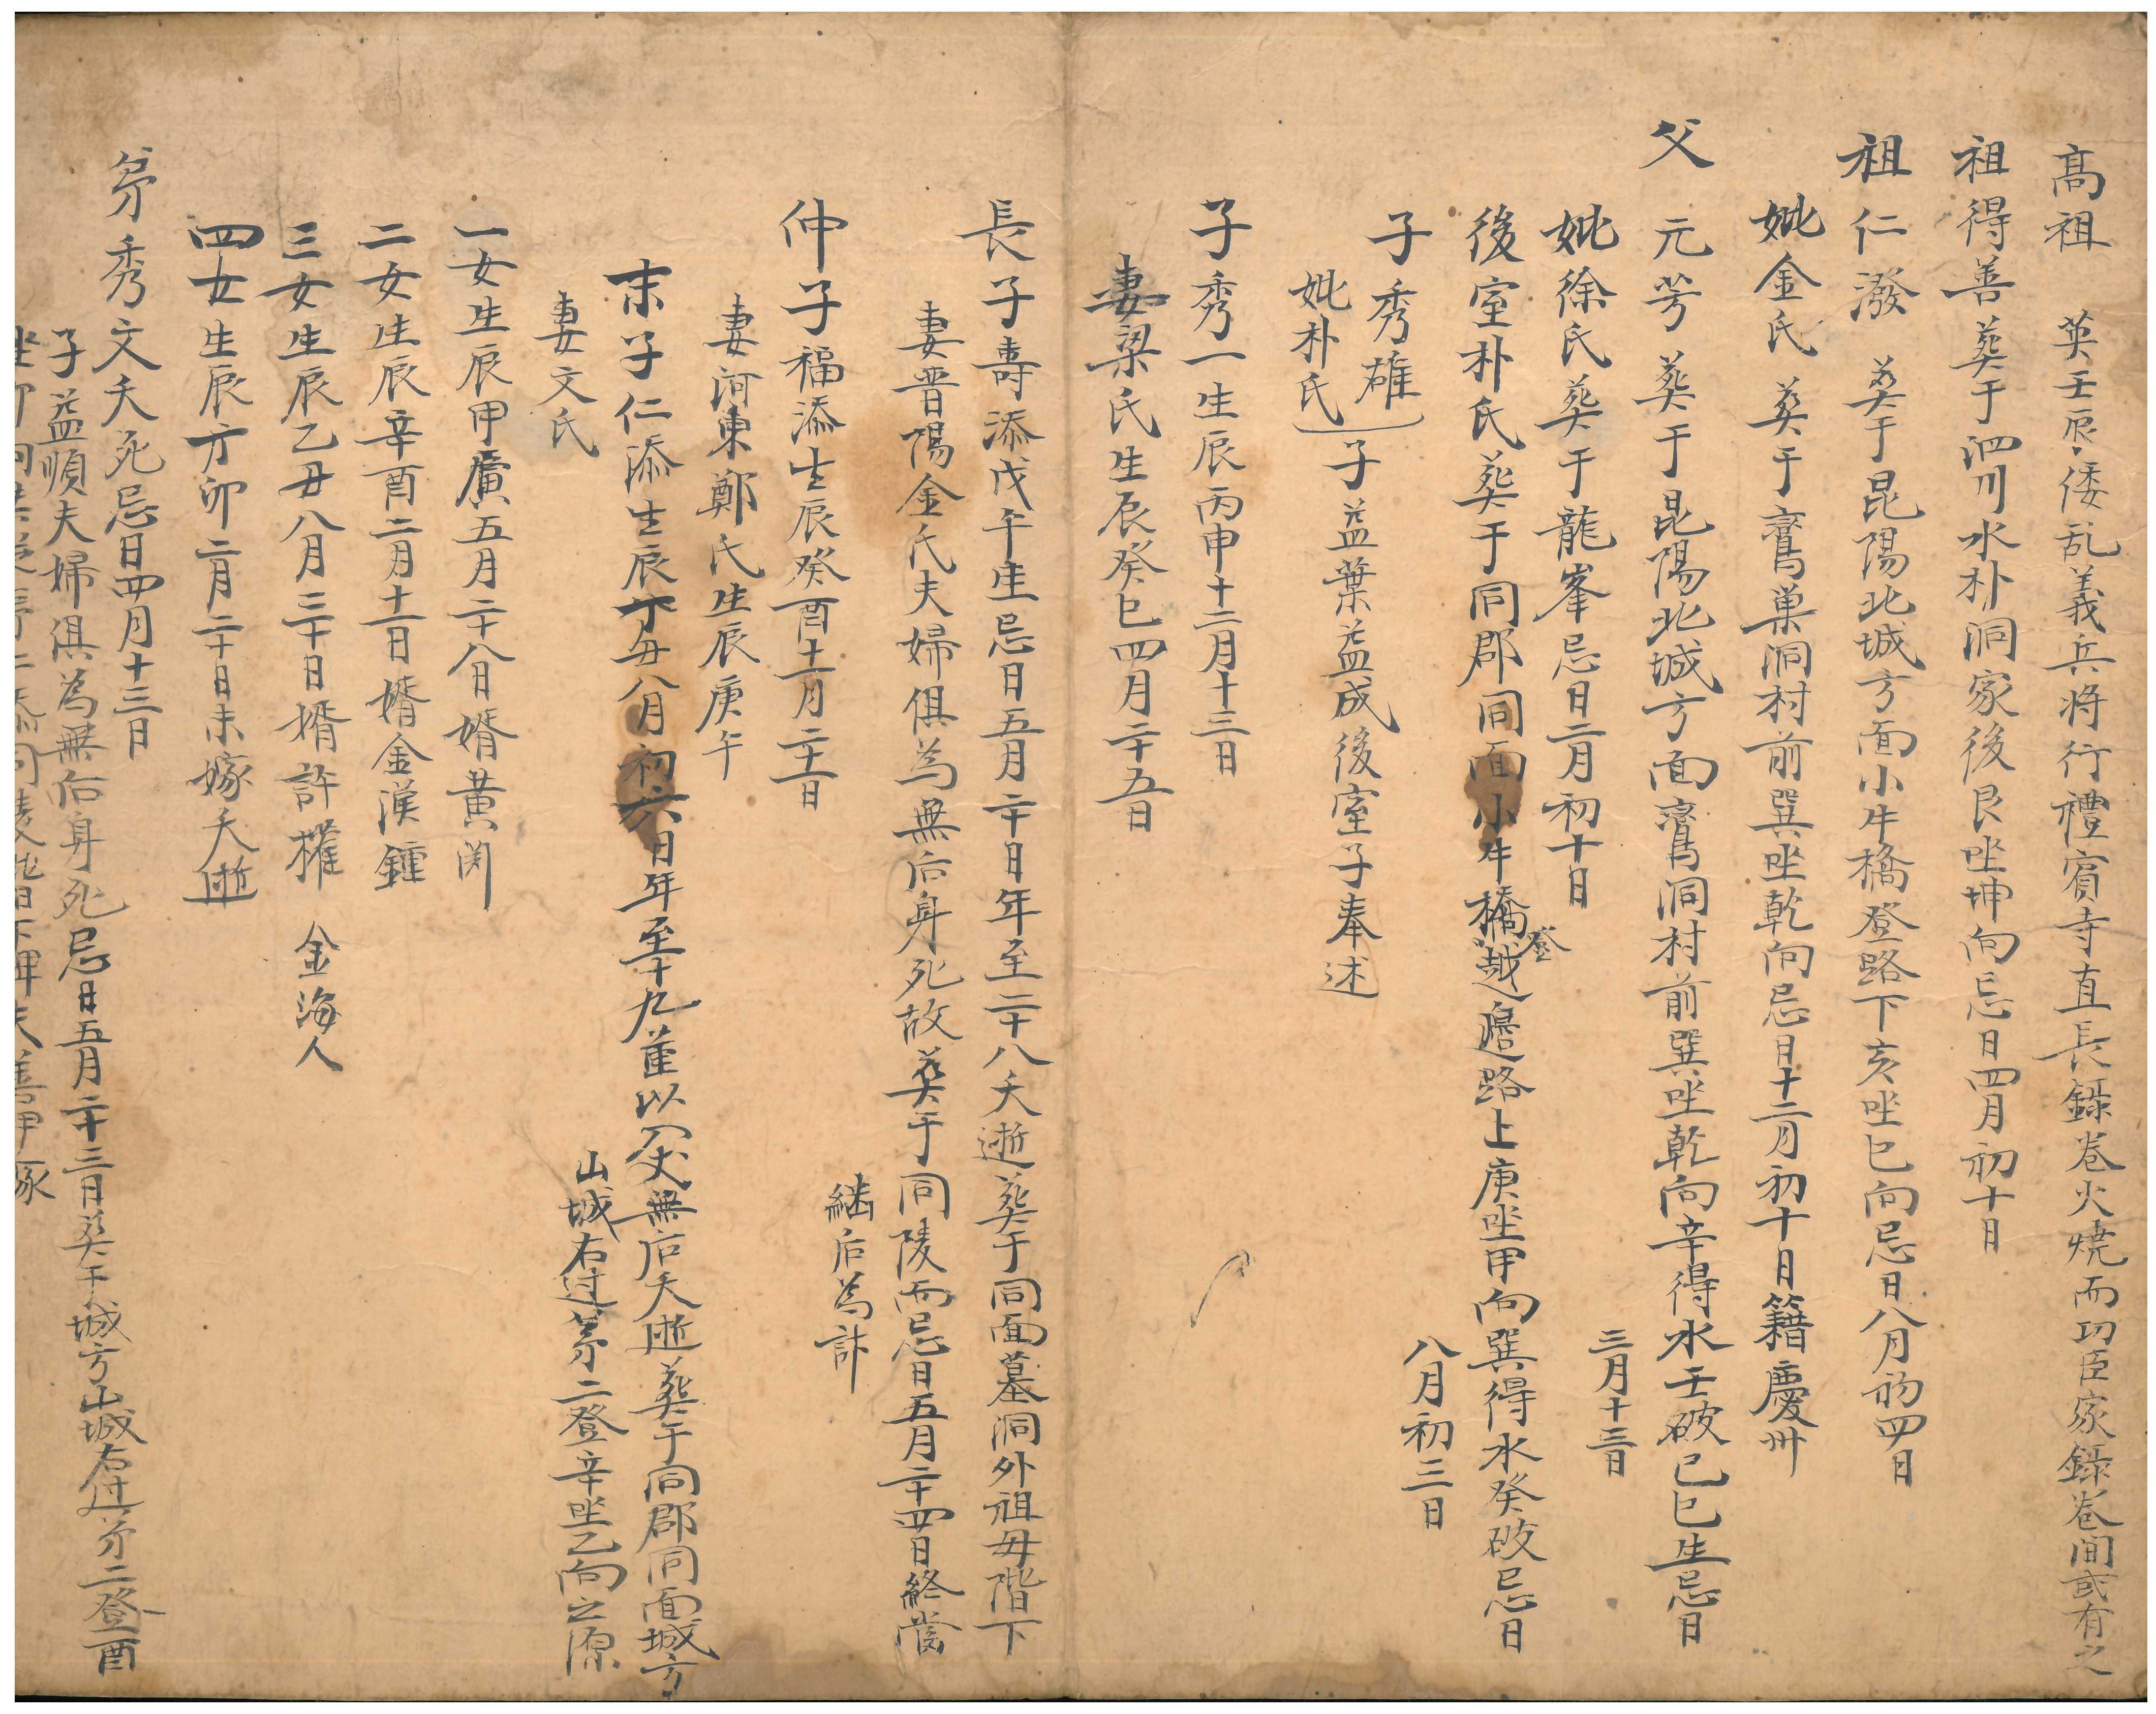 高祖 英壬辰倭乱義兵将行禮賓寺直長錄卷火燒而功臣家錄卷間或有之
祖得善葬于泗川水朴洞家後艮坐坤向忌日四月初十日
祖仁潑 葬于昆陽北城方面小牛橋登路下亥坐巳向忌日八月初四日
妣金氏 葬于巢洞村前巽坐乾向忌日十二月初十日籍慶州
父 元芳 葬于昆陽北城方面洞村前巽坐乾向辛得水壬破己巳生忌日
三月十三日
妣徐氏葬于龍峯忌日二月初十日
後室朴氏葬于同郡同面小牛橋登越邊路上庚坐甲向巽得水癸破忌日
八月初三日
子 秀雄
妣朴氏
子益葉益成後室子奉述
子秀一生辰丙申十二月十三日
妻梁氏生辰癸巳四月二十五日
長子壽添戊午生忌日五月二十日年至二十八夭逝葬于同面墓洞外祖母階下
妻晋陽金氏夫婦俱為無后身死故葬于同陵而忌日五月二十四日終當
繼后為計
仲子福添生辰癸酉十一月二十一日
妻河東鄭氏生辰庚午
末子仁添生辰丁丑八月初六日年至十九董以无無后夭逝葬于同郡同面城方
山城右过第二登辛坐乙向之源
妻文氏
一女生辰甲五月二十八日婿黄
二女生辰辛酉二月十一日婿金漢鍾
三女生辰乙丑八月三十日婿許權 金海人
四女生辰方卯二月二十日未嫁夭逝
第秀文夭死忌日四月十三日
子益順夫婦俱為無后身死忌日五月二十三日葬于城方山城右过第二登酉
坐卯向